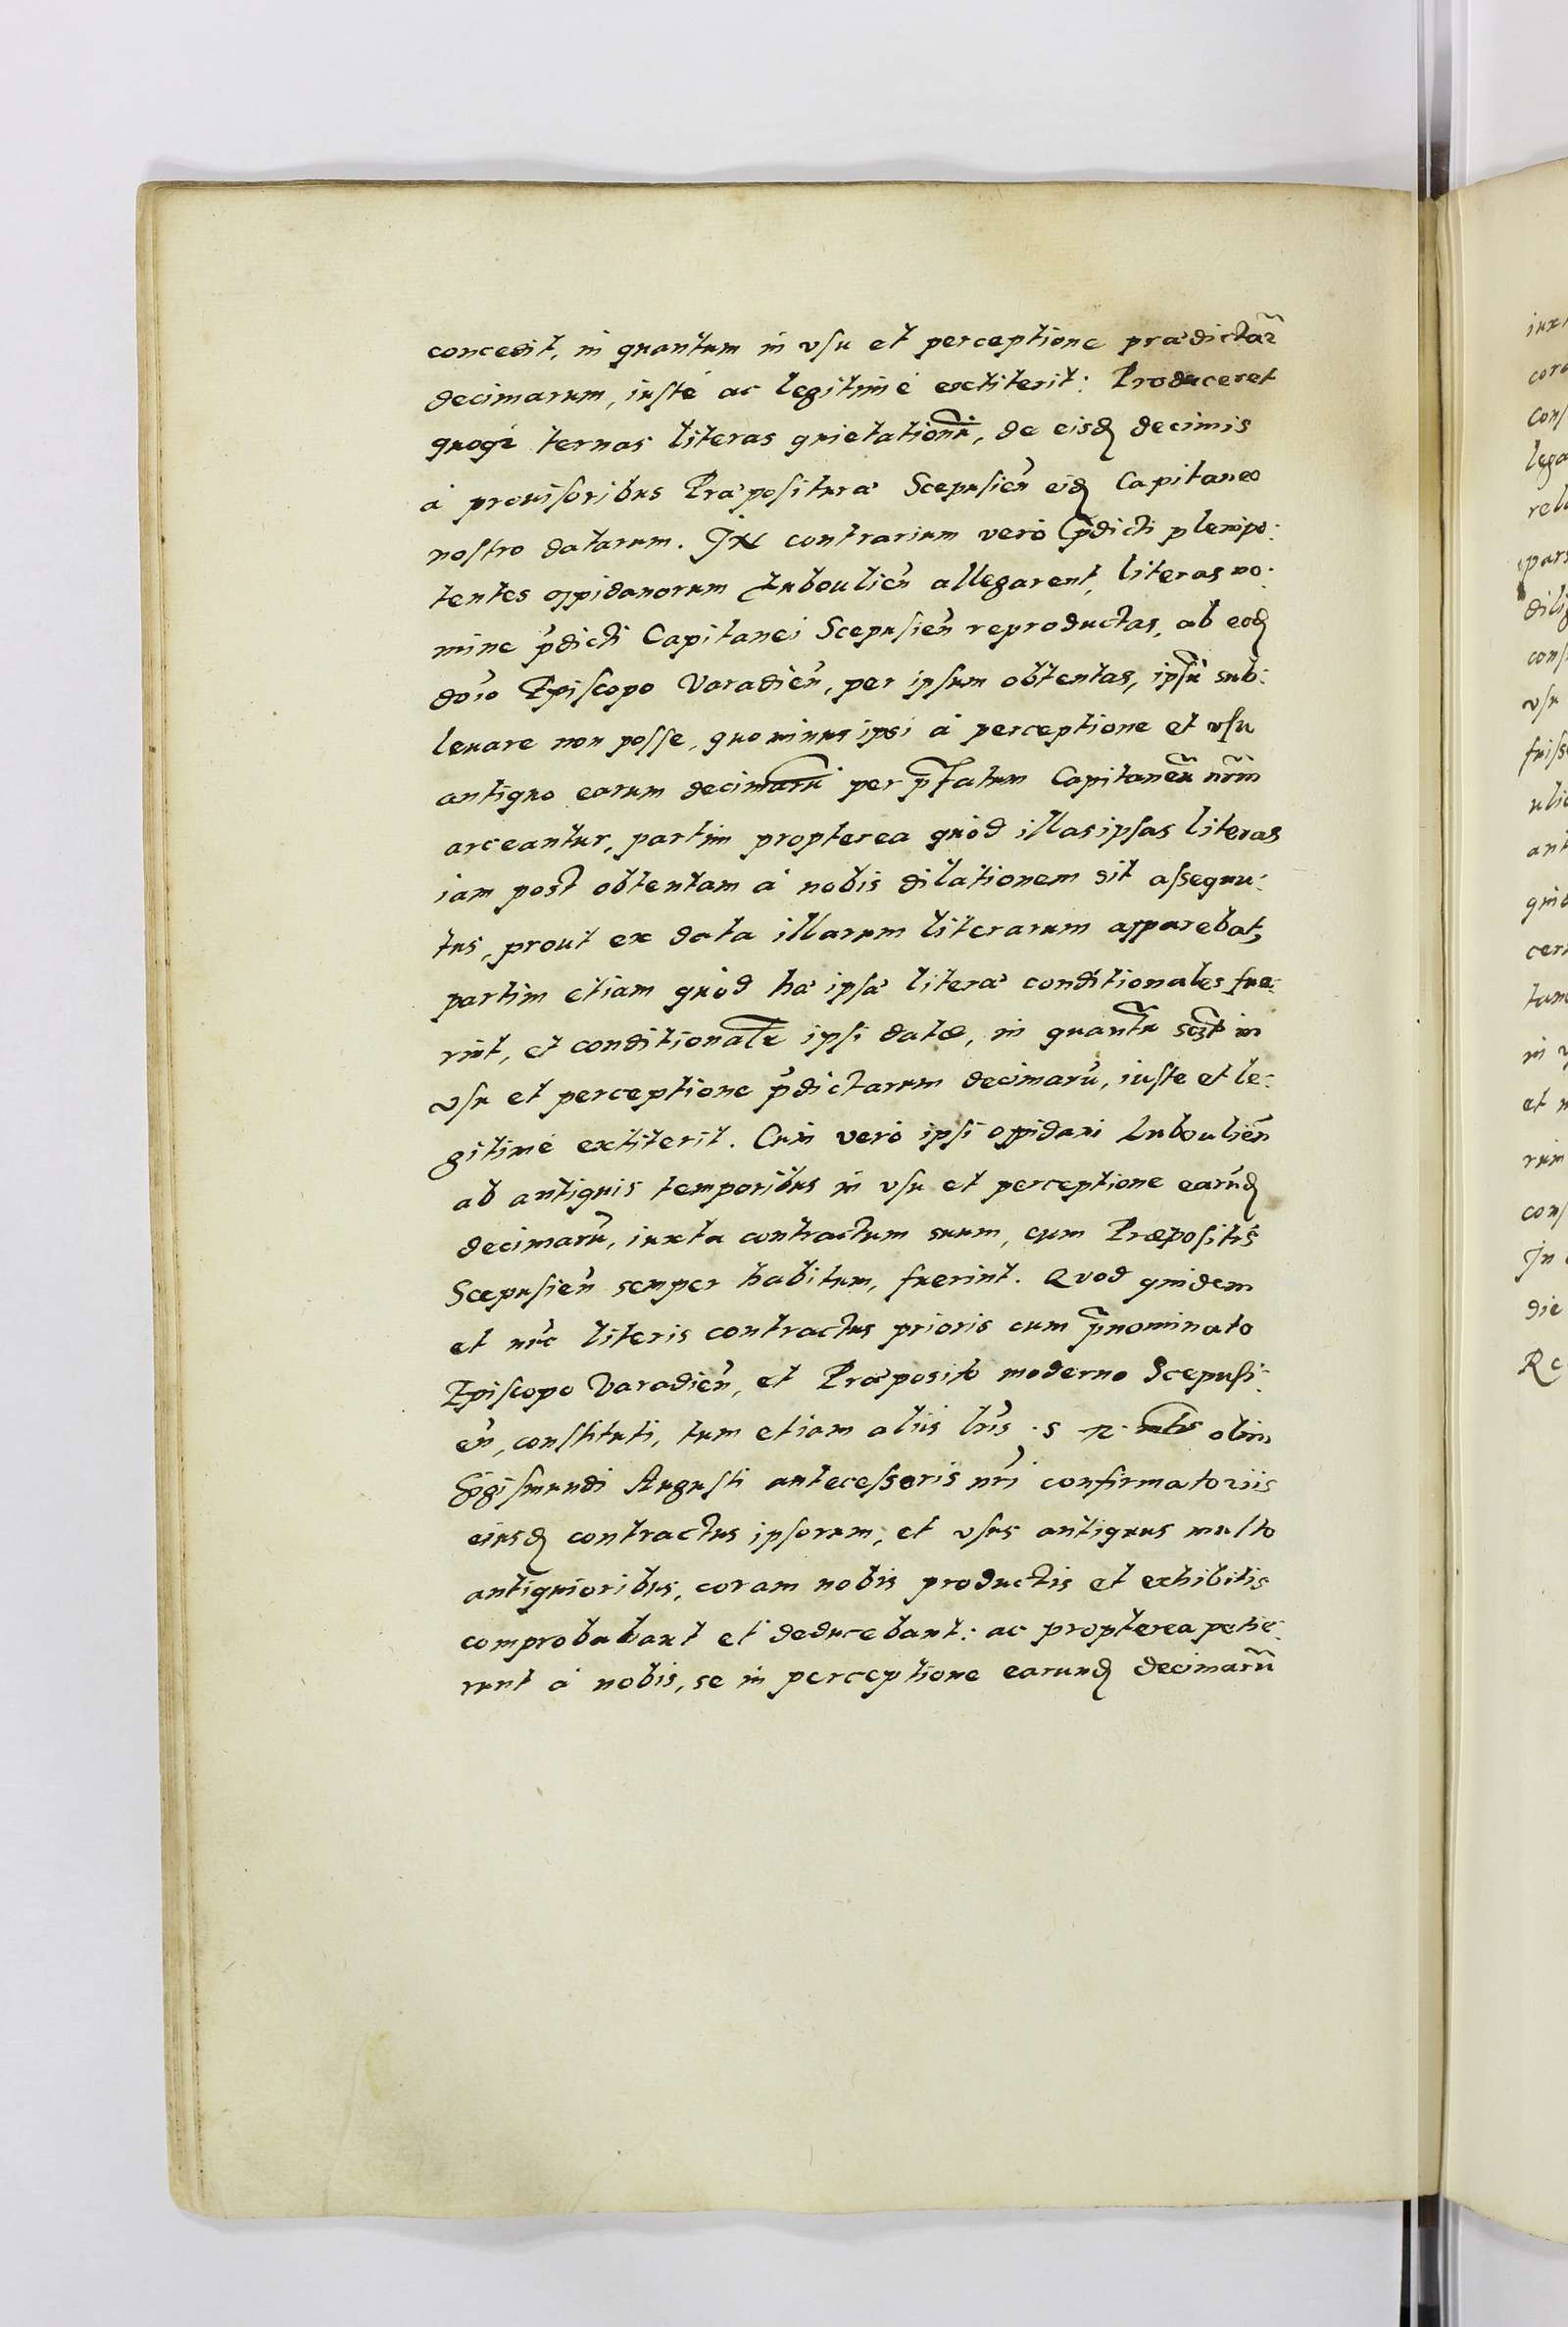 concedit, in quantum in vsu et perceptione prædictar̃
decimarum, iustè ac legitimè extiterit: Produceret
quoq3 ternas literas quietationũ, de eisd decimis
à prouisoribus Præposituræ Scepusień eid Capitaneo
nostro datarum. In contrarium verò p̃dicti plenipo:
tentes oppidanorum Luboulień allegarent, literas no:
mine p̃dicti Capitanei Scepusień reproductas, ab eod
dn̄o Episcopo Varadień, per ipsum obtentas, ipsũ sub:
leuare non posse, quominus ipsi à perceptione et vsu
antiquo earum decimarũ per p̃fatum Capitaneũ nr̃m
arceantur, partim propterea quòd illas ipsas literas
iam post obtentam à nobis dilationem sit assequu:
tus, prout ex data illarum literarum apparebat,
partim etiam quòd hæ ipsæ literæ conditionales fue:
rint, et conditionalr̃ ipsi datæ, in quantũ sczt in
vsu et perceptione p̃dictarum decimarũ, iuste et le:
gitimè extiterit. Cum verò ipsi oppidani Luboulień
ab antiquis temporibus in vsu et perceptione earũd
decimarũ, iuxta contractum suum, cum Præpositis
Scepusień semper habitum, fuerint. Quod quidem
et nũc literis contractus prioris cum p̃nominato
Episcopo Varadień, et Præposito moderno Scepusi:
eń, constituti, tum etiam aliis lr̃is .S. R. mtis olim
Sigismundi Augusti antecessoris nr̃i confirmatoriis
eiusd contractus ipsorum, et vsus antiquus multo
antiquioribus, coram nobis productis et exhibitis
comprobabant et deducebant: ac propterea petie:
runt à nobis, se in perceptione earund decimarũ